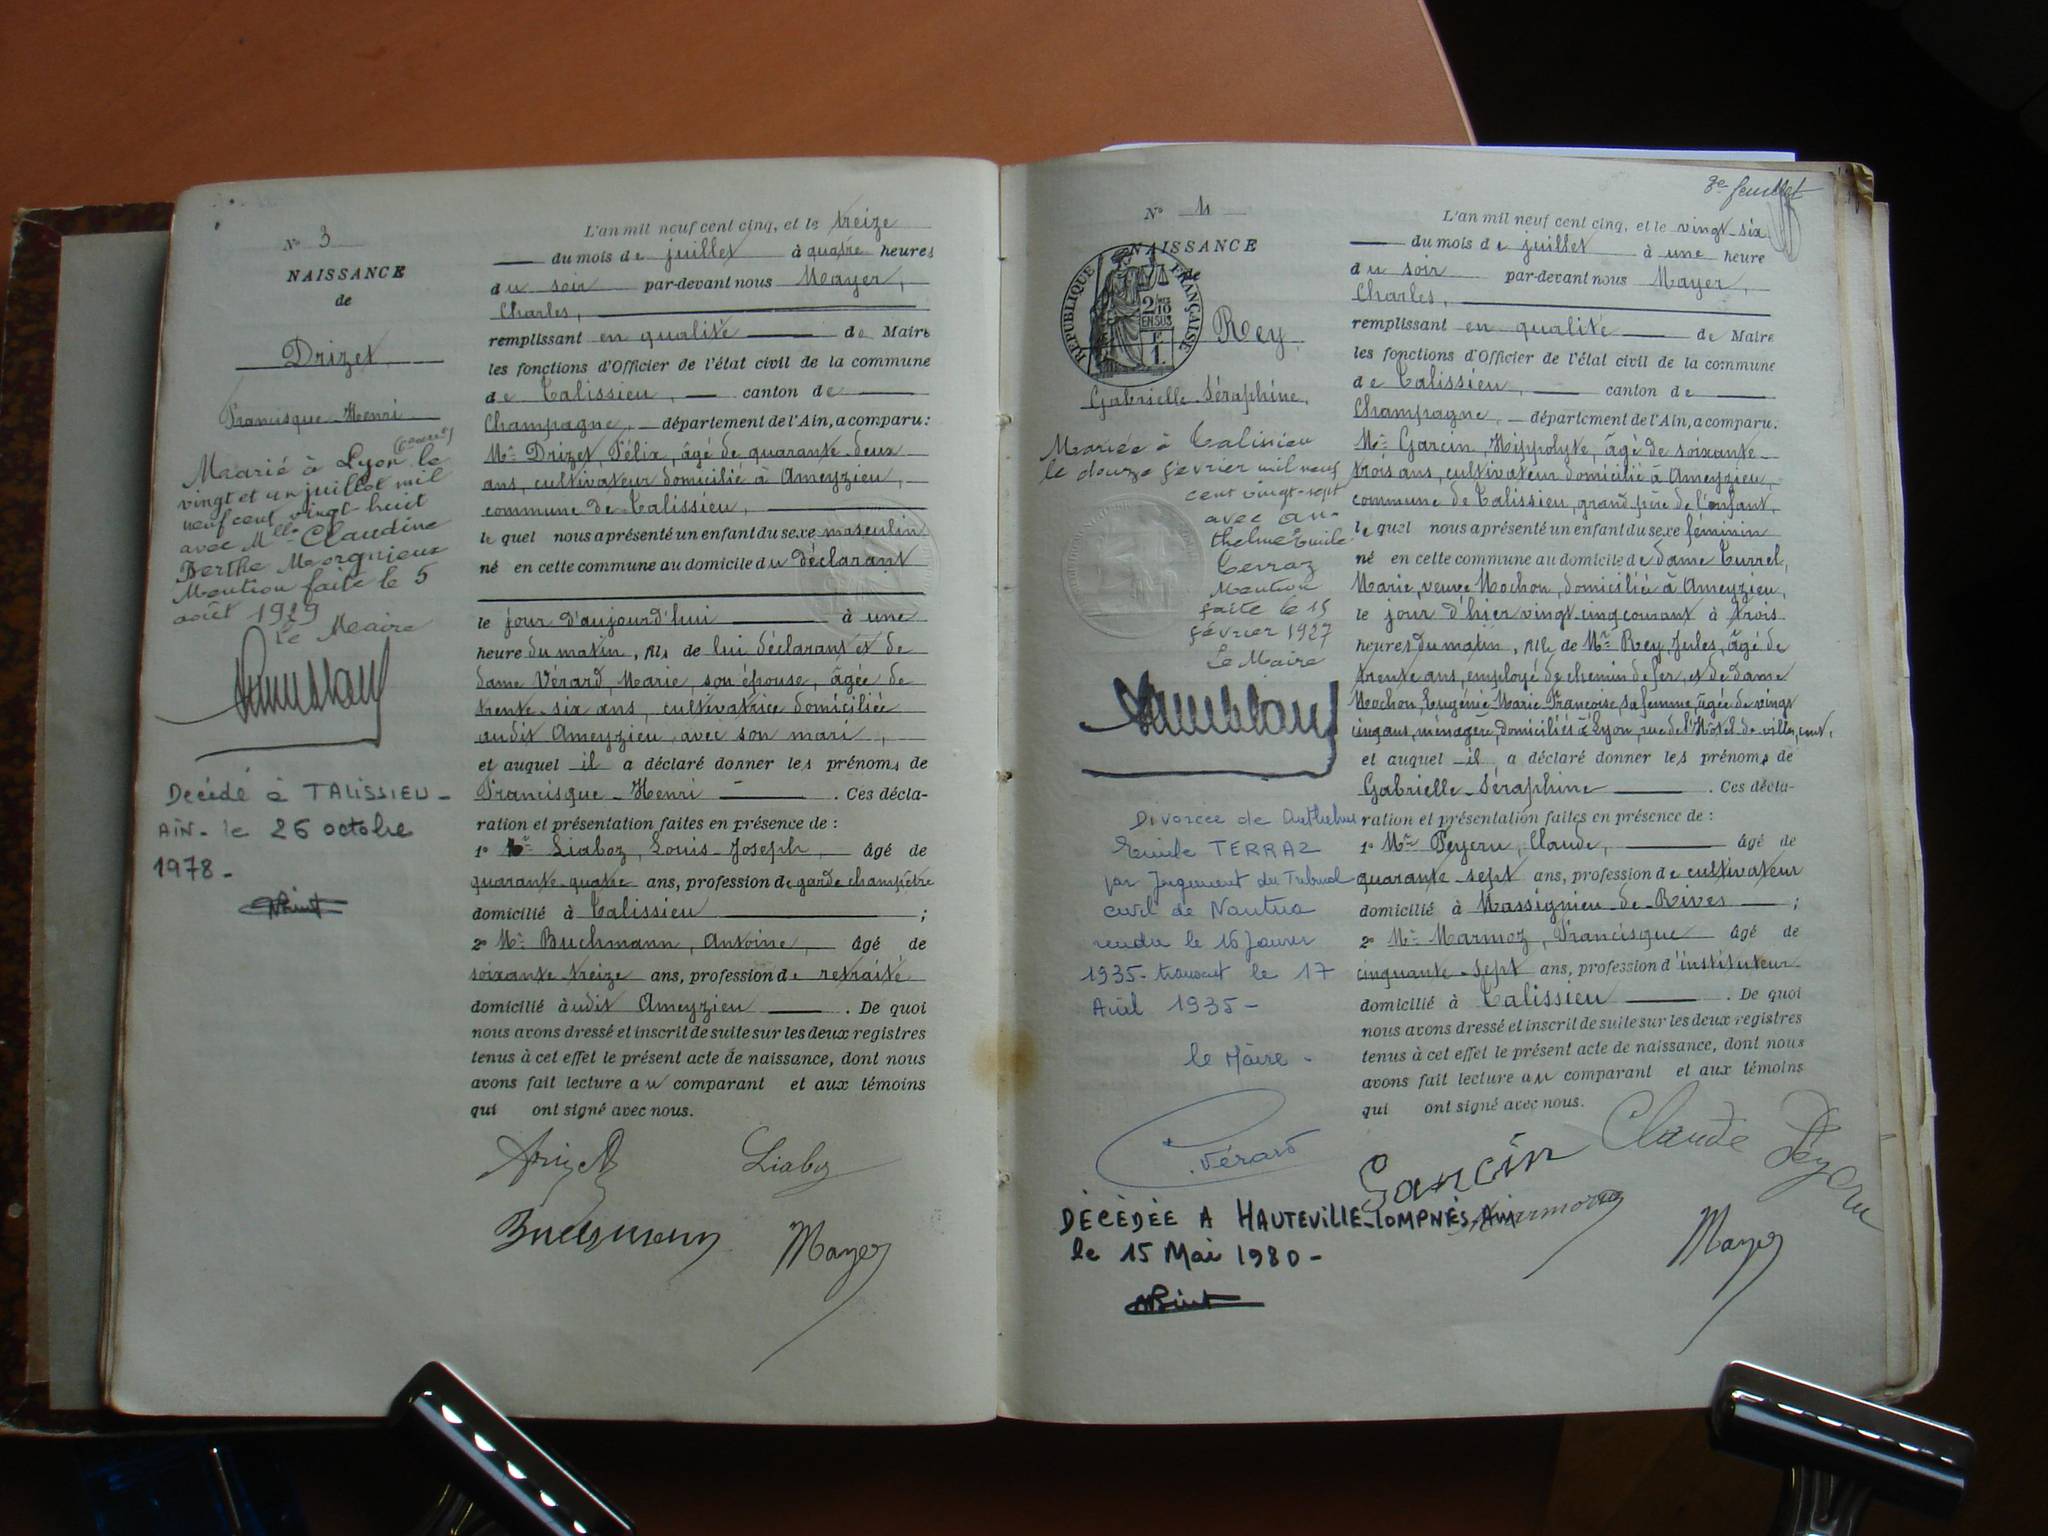 N° 3
NAISSANCE
de
Drizet
Francisque-Henri
Marié à Lyon le
vingt et un juillet mil
neuf cent vingt-huit
avec Mlle Claudine
Berthe Morgnieux
Mention faite le 5
août 1929
Le Maire
Décédé à TALISSIEU-
AIN- le 26 octobre
1978-
L'an mil neuf cent cinq, et le treize
du mois de juillet à quatre heures
du soir par-devant nous Mayer,
Charles,
remplissant en qualité de Maire
les fonctions d'Officier de l'état civil de la commune
de Talissieu, canton de
Champagne, département de l'Ain, a comparu:
Mr Drizet, Félix, âgé de quarante-deux
ans, cultivateur domicilié à Ameyzieu,
commune de Talissieu,
lequel nous a présenté un enfant du sexe masculin
né en cette commune au domicile du déclarant
le jour d'aujourd'hui à une
heure du matin, fils de lui déclarant et de
dame Vérard, Marie, son épouse, âgée de
trente-six ans, cultivatrice domiciliée
audit Ameyzieu avec son mari,
et auquel il a déclaré donner les prénoms de
Francisque-Henri. Ces décla-
ration et présentation faites en présence de :
1° Mr Liaboz, Louis-Joseph, âgé de
quarante-quatre ans, profession de garde champêtre
domicilié à Talissieu ;
2° Mr Buchmann, Antoine, âgé de
soixante-treize ans, profession de retraité
domicilié audit Ameyzieu. De quoi
nous avons dressé et inscrit de suite sur les deux registres
tenus à cet effet le présent acte de naissance, dont nous
avons fait lecture au comparant et aux témoins
qui ont signé avec nous.
Drizet Liaboz
Buchmann Mayer
3e feuillet
N° 4
NAISSANCE
de
RÉPUBLIQUE FRANÇAISE
2/10
EN SUS
Rey
Gabrielle-Séraphine,
Mariée à Talissieu
le douze février mil neuf
cent vingt-sept
avec An-
thelme Emile
Terraz
Mention
faite le 15
février 1927
Le Maire
Divorcée de Anthelme
Emile TERRAZ
par Jugement du Tribunal
civil de Nantua
rendu le 16 Janvier
1935- transcrit le 17
Avril 1935-
le Maire-
Vérard
DÉCÉDÉE A HAUTEVILLE-LOMPNES AIN
le 15 Mai 1980-
L'an mil neuf cent cinq, et le vingt-six
du mois de juillet à une heure
du soir par-devant nous Mayer,
Charles,
remplissant en qualité de Maire
les fonctions d'Officier de l'état civil de la commune
de Talissieu, canton de
Champagne, département de l'Ain, a comparu:
Mr Garcin, Hippolyte, âgé de soixante-
trois ans, cultivateur domicilié à Ameyzieu,
commune de Talissieu, grand père de l'enfant,
lequel nous a présenté un enfant du sexe féminin
né en cette commune au domicile de dame Turrel,
Marie, veuve Mochon, domiciliée à Ameyzieu,
le jour d'hier vingt-cinq courant à trois
heures du matin, fille de Mr Rey, Jules, âgé de
trente ans, employé de chemin de fer, et de dame
Mochon, Eugénie Marie Françoise, sa femme, âgée de vingt
cinq ans, ménagère, domiciliés à Lyon, rue de l'Hôtel de ville, cent,
et auquel il a déclaré donner les prénoms de
Gabrielle-Séraphine. Ces décla-
ration et présentation faites en présence de :
1° Mr Peyeru, Claude, âgé de
quarante-sept ans, profession de cultivateur
domicilié à Massignieu-de-Rives ;
2° Mr Marmoz, Francisque âgé de
cinquante-sept ans, profession d'instituteur
domicilié à Talissieu. De quoi
nous avons dressé et inscrit de suite sur les deux registres
tenus à cet effet le présent acte de naissance, dont nous
avons fait lecture au comparant et aux témoins
qui ont signé avec nous.
Garcin Claude Peyeru
Marmoz
Mayer